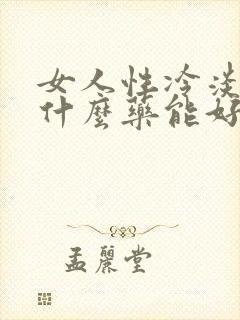 女人性冷淡
什麼藥能好
孟麗堂